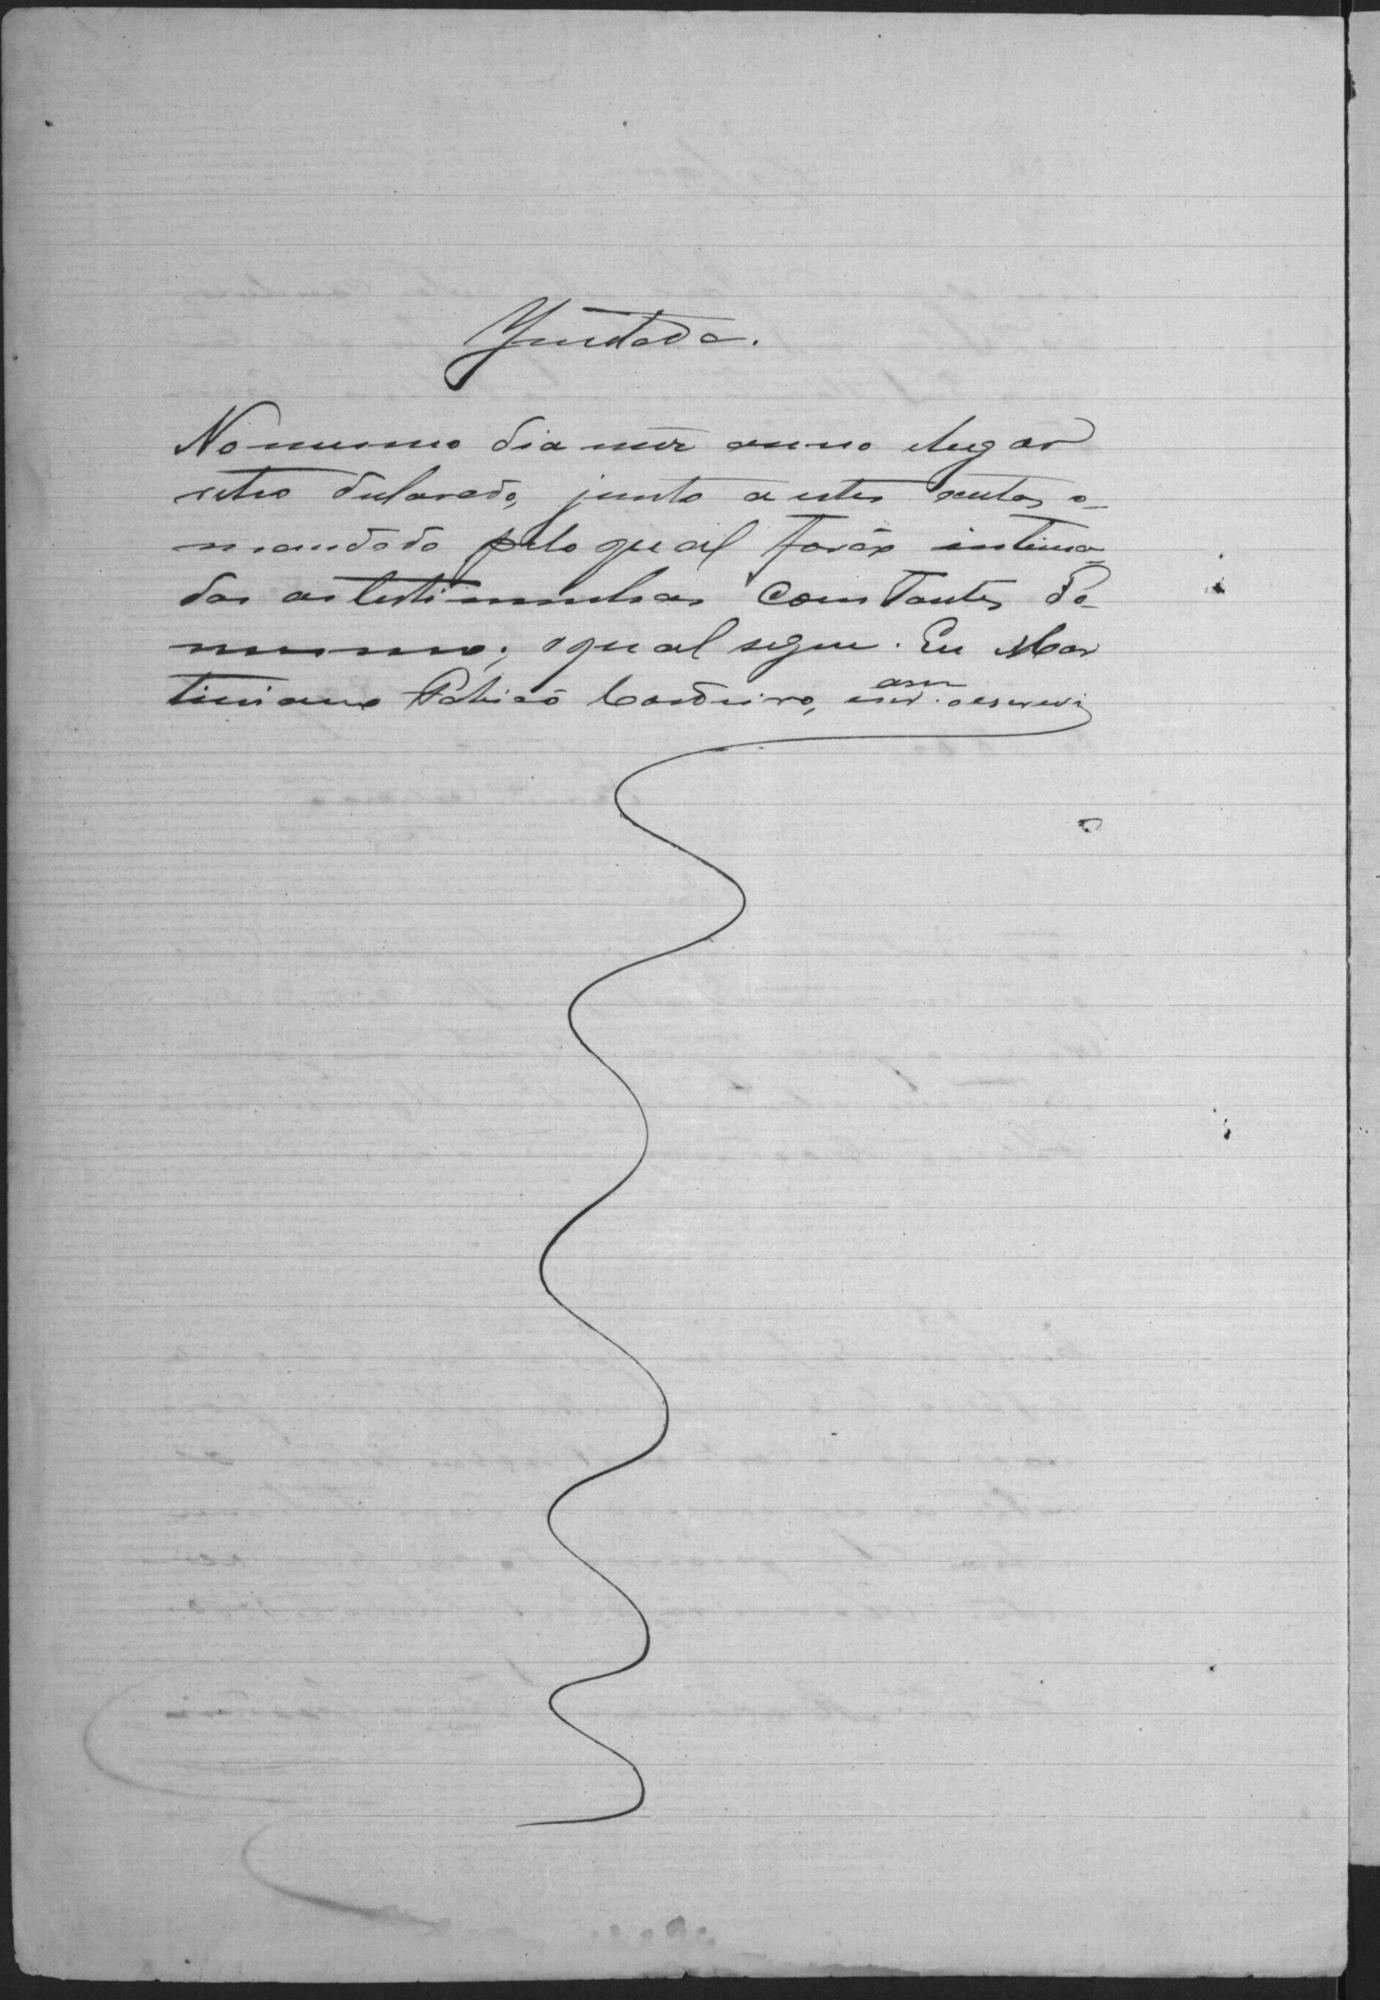 Juntada.
No mesmo dia mez anno e lugar
retro declarado, junto a estes autos o
mandado pelo qual forão intima
das as testimunhas constantes do
mesmo; o qual segue. Eu Mar
tiniano Cordeiro, escr. o escrevi